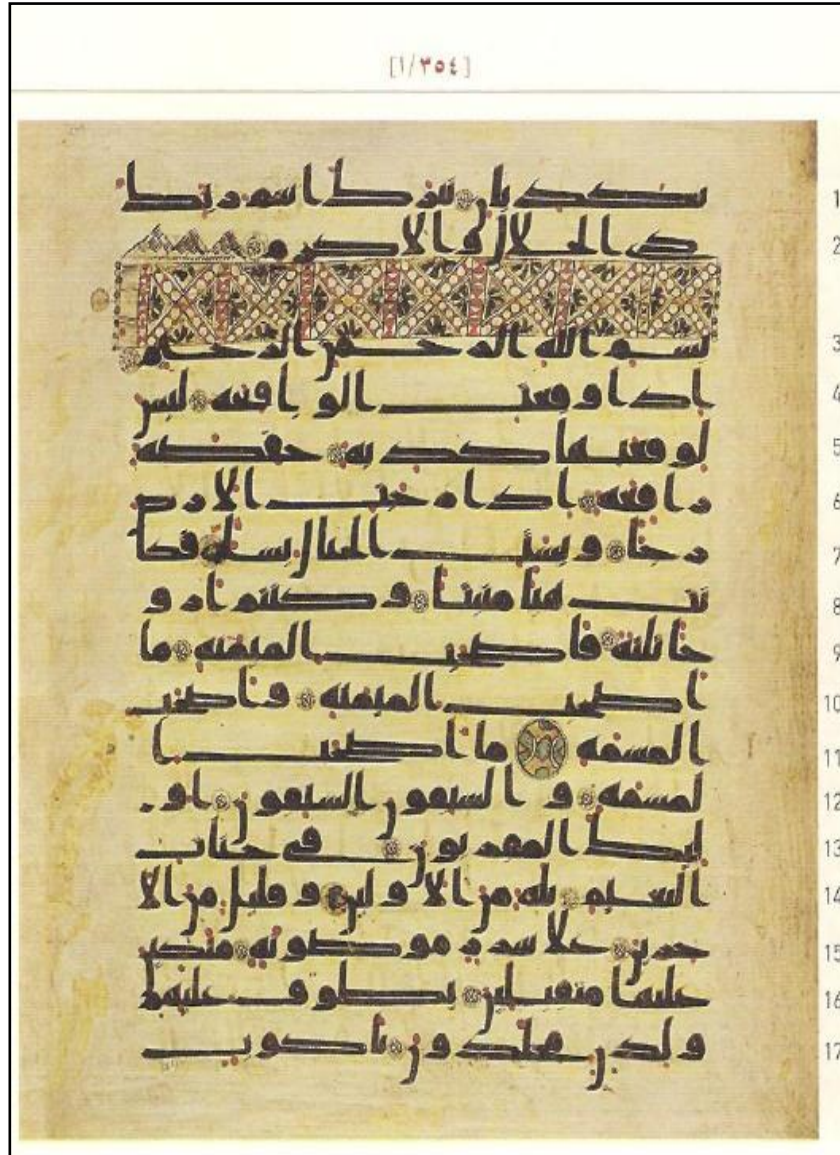 [١/٣٥٤]
1 تكذبان تبرك اسم ربك
2 ذى الجلال والاكرم
3 بسم الله الرحمن الرحيم
4 اذا وقعت الواقعة ليس
5 لوقعتها كذبة خفضة
6 رافعة اذا رجت الارض
7 رجا وبست الجبال بسا فكا
8 نت هبا منبثا وكنتم ازو
9 جا ثلثة فاصحب الميمنة ما
10 اصحب الميمنة واصحب
11 المشمة ما اصحب ا
12 لمشمة و السبقون السبقون او
13 ليك المقربون في جنات
14 النعيم ثلة من الاولين وقليل من الا
15 خرين على سرر موضونة متكين
16 عليها متقبلين يطوف عليهم
17 ولدن مخلدون باكواب